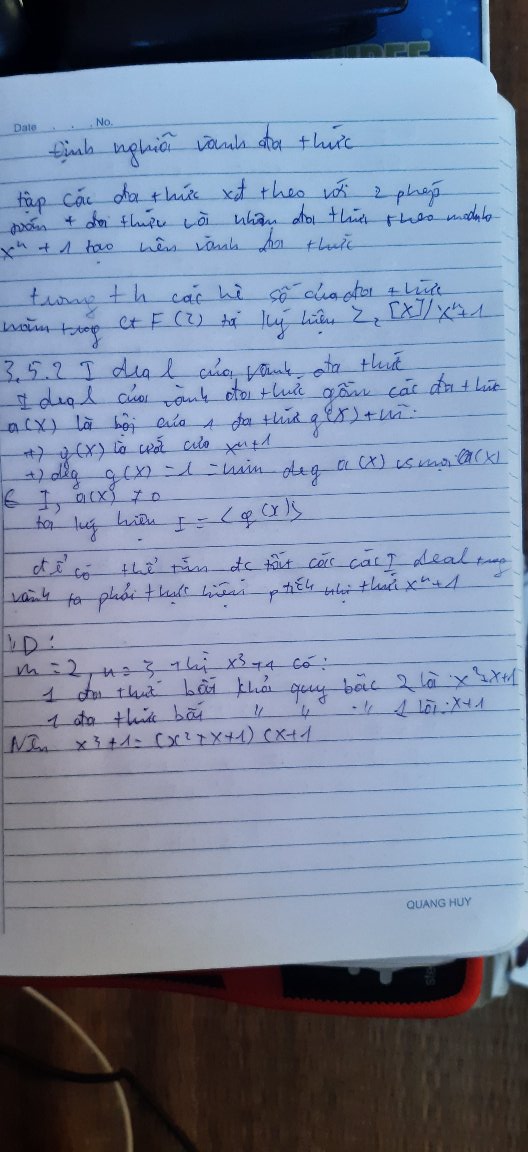 Date . . . No.
Định nghĩa vành đa thức
tập các đa thức xđ theo với 2 phép
toán + đa thức và nhân đa thức theo modulo
x^n + 1 tạo nên vành đa thức
trong th các hệ số của đa thức
nằm trong GF(2) ta ký hiệu Z2[X]/x^n+1
3.5.2 Ideal của vành đa thức
Ideal của vành đa thức gồm các đa thức
a(X) là bội của 1 đa thức g(X) + mì:
+) g(X) là ước của x^n+1
+) deg g(X) = 1 = min deg a(X) mọi a(X)
∈ I, a(X) ≠ 0
ta ký hiệu I = <g(X)>
để có thể tìm đc tất các các Ideal trong
vành ta phải thực hiện ptích nhị thức x^n+1
VD:
m = 2, n = 3 thì x^3+1 có:
1 đa thức bất khả quy bậc 2 là: x^2+x+1
1 đa thức bất " " " 1 là: x+1
Nên x^3+1 = (x^2+x+1)(x+1
QUANG HUY